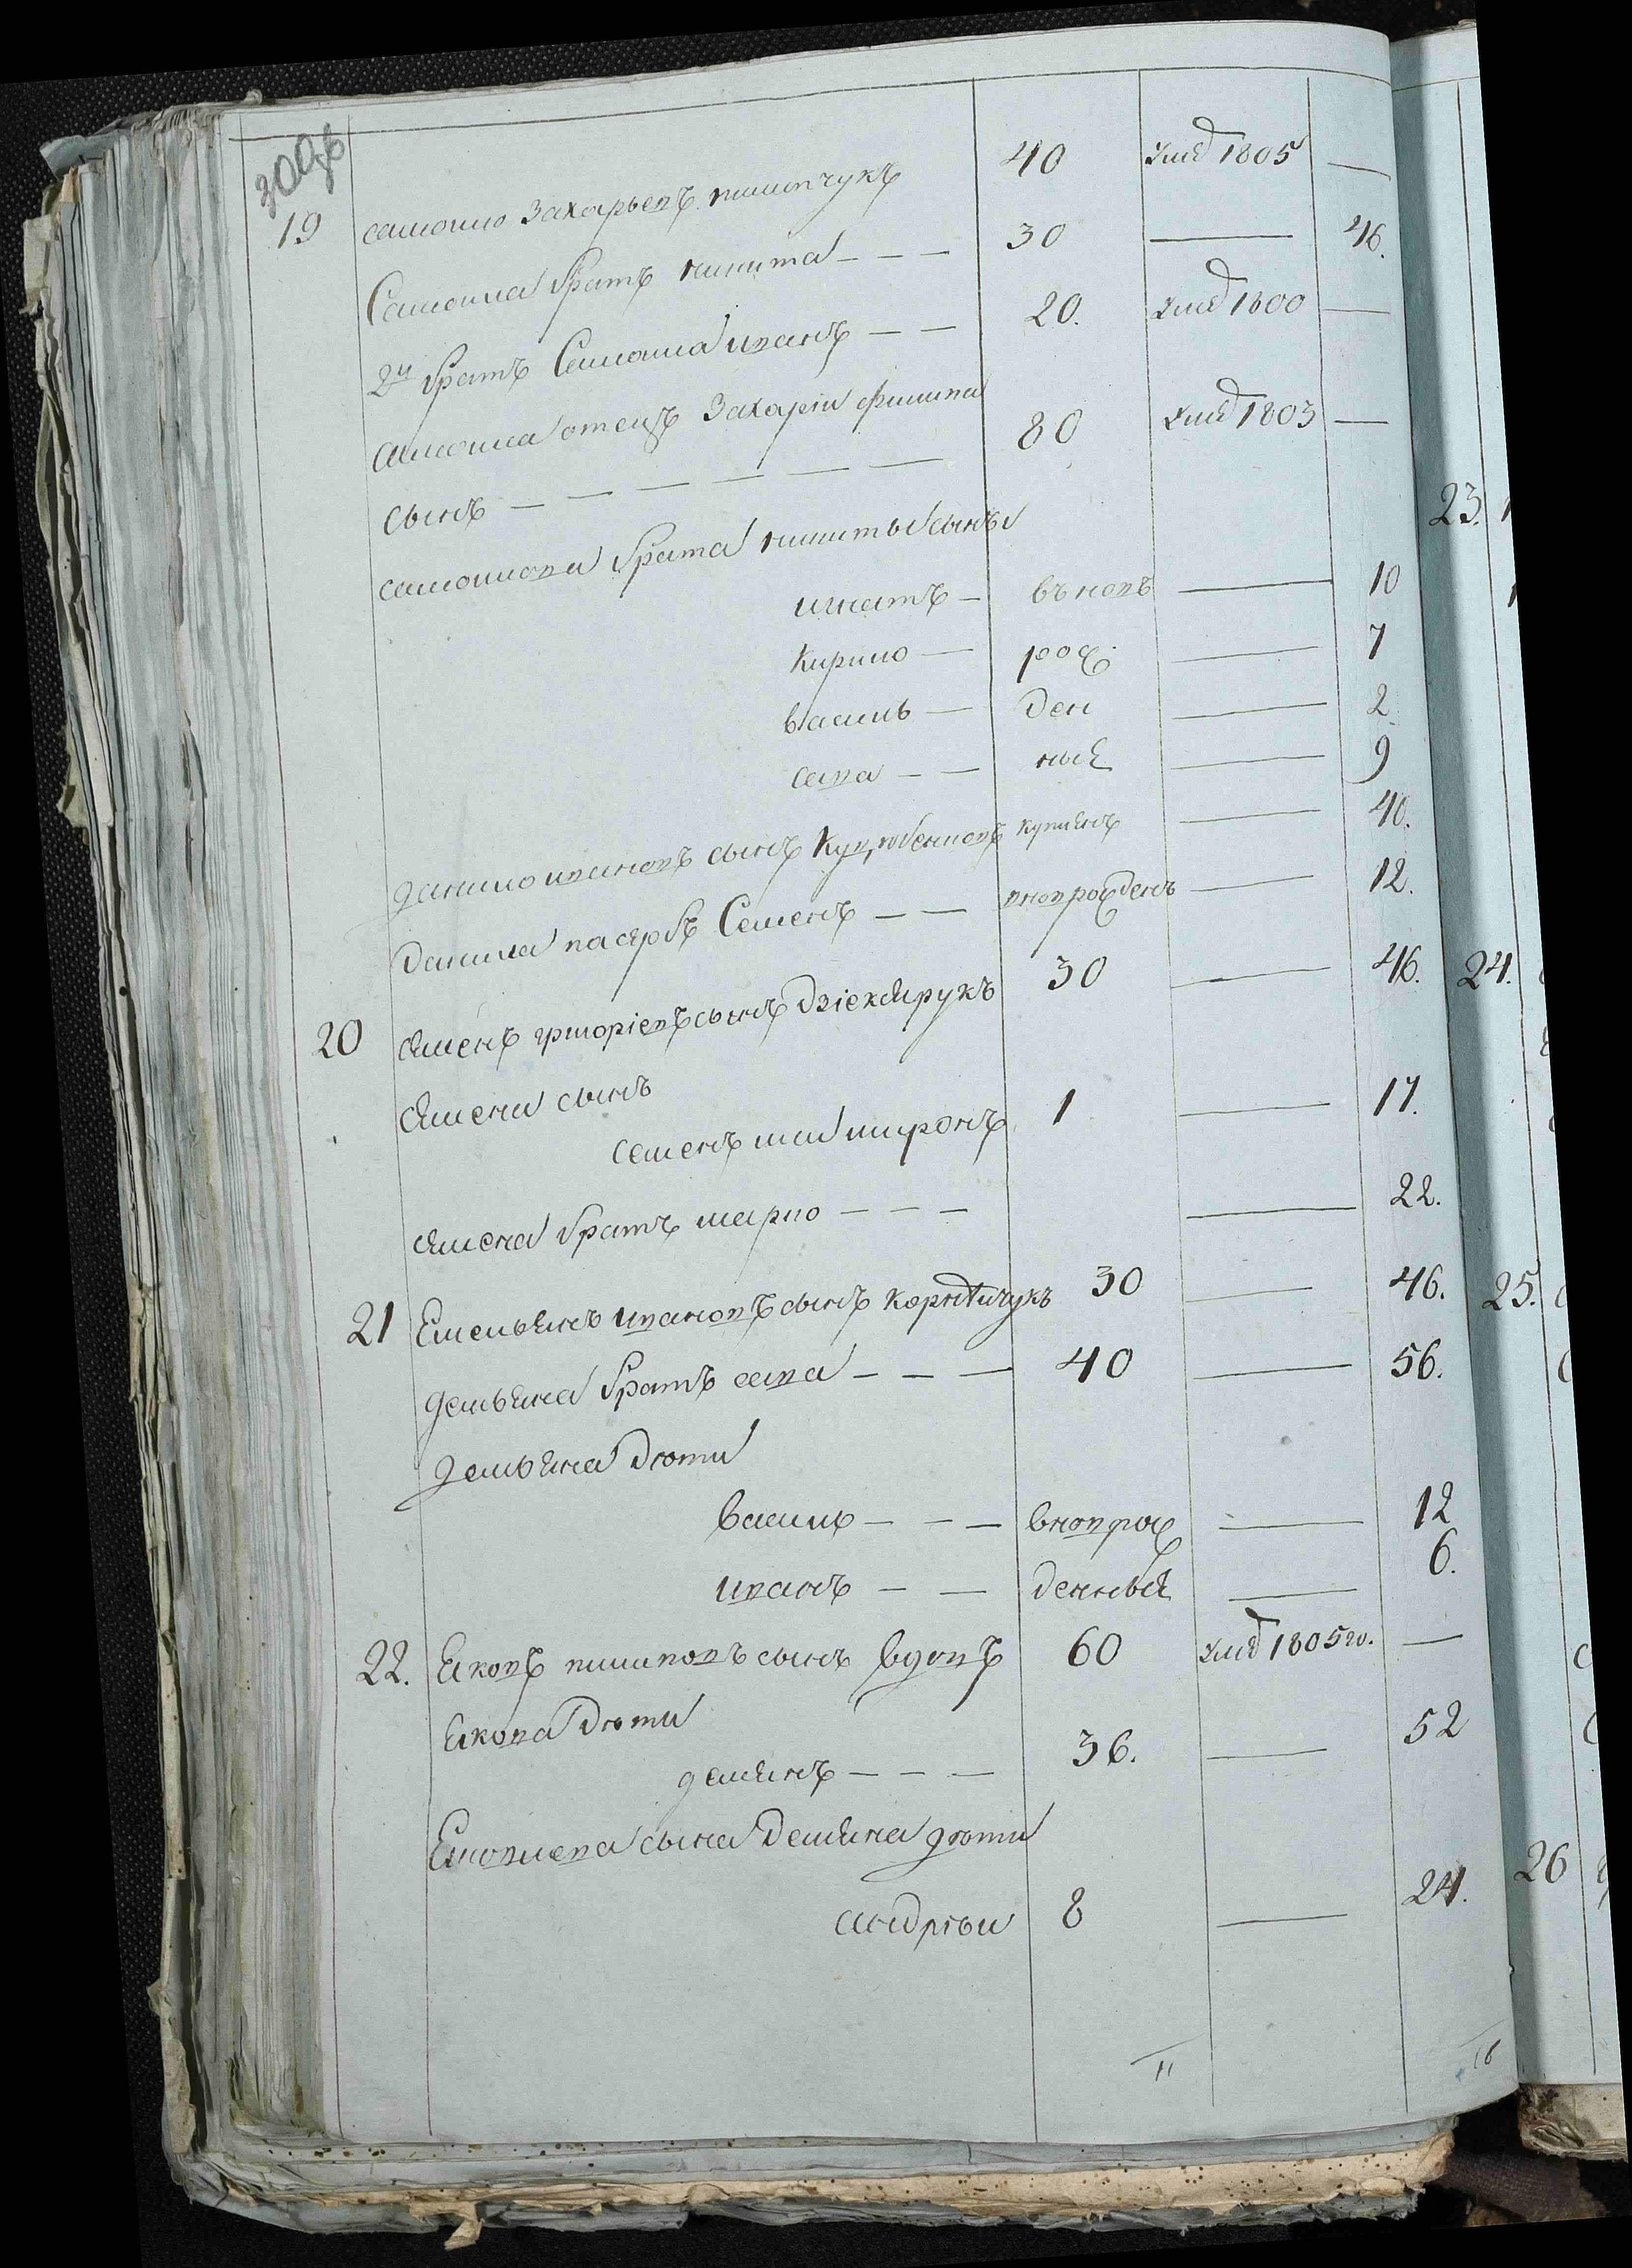 300об
19 самоило Захарьевъ пилипчукъ 40 умер 1805 —
Самоила братъ никита — — — 30 — 46.
2й братъ Самоила иванъ — — 20. умер 1800 —
самоила отецъ Захарiи филипа
сынъ — — — — — — 80 умер 1803 —
самоилова брата никиты сыны
игнатъ — въновь — 10
кирило — рож — 7
василь — ден — 2
сава — — ныя — 9
данило ивановъ сынъ купленъ — 40.
данила пасербъ Семенъ — — вновь рожденъ — 12.
20 семенъ григорiевъ сынъ дзiекарукъ 30 — 46.
семена сынъ
семенъ или миронъ 1 — 17.
семена братъ марко — — — — 22.
21 Емельянъ ивановъ сынъ корнѣичукъ 30 — 46.
демьяна братъ сава — — — 40 — 56.
демьяна дѣти
василь — — — вновь рож — 12
иванъ — — денныя — 6.
22. яковъ пилиповъ сынъ вдовъ 60 умер 1805 го. —
якова дѣти
демянъ — — — 36. — 52
сына демяна дѣти
андрѣи 8 — 24.
11 18
23.
24.
25.
26